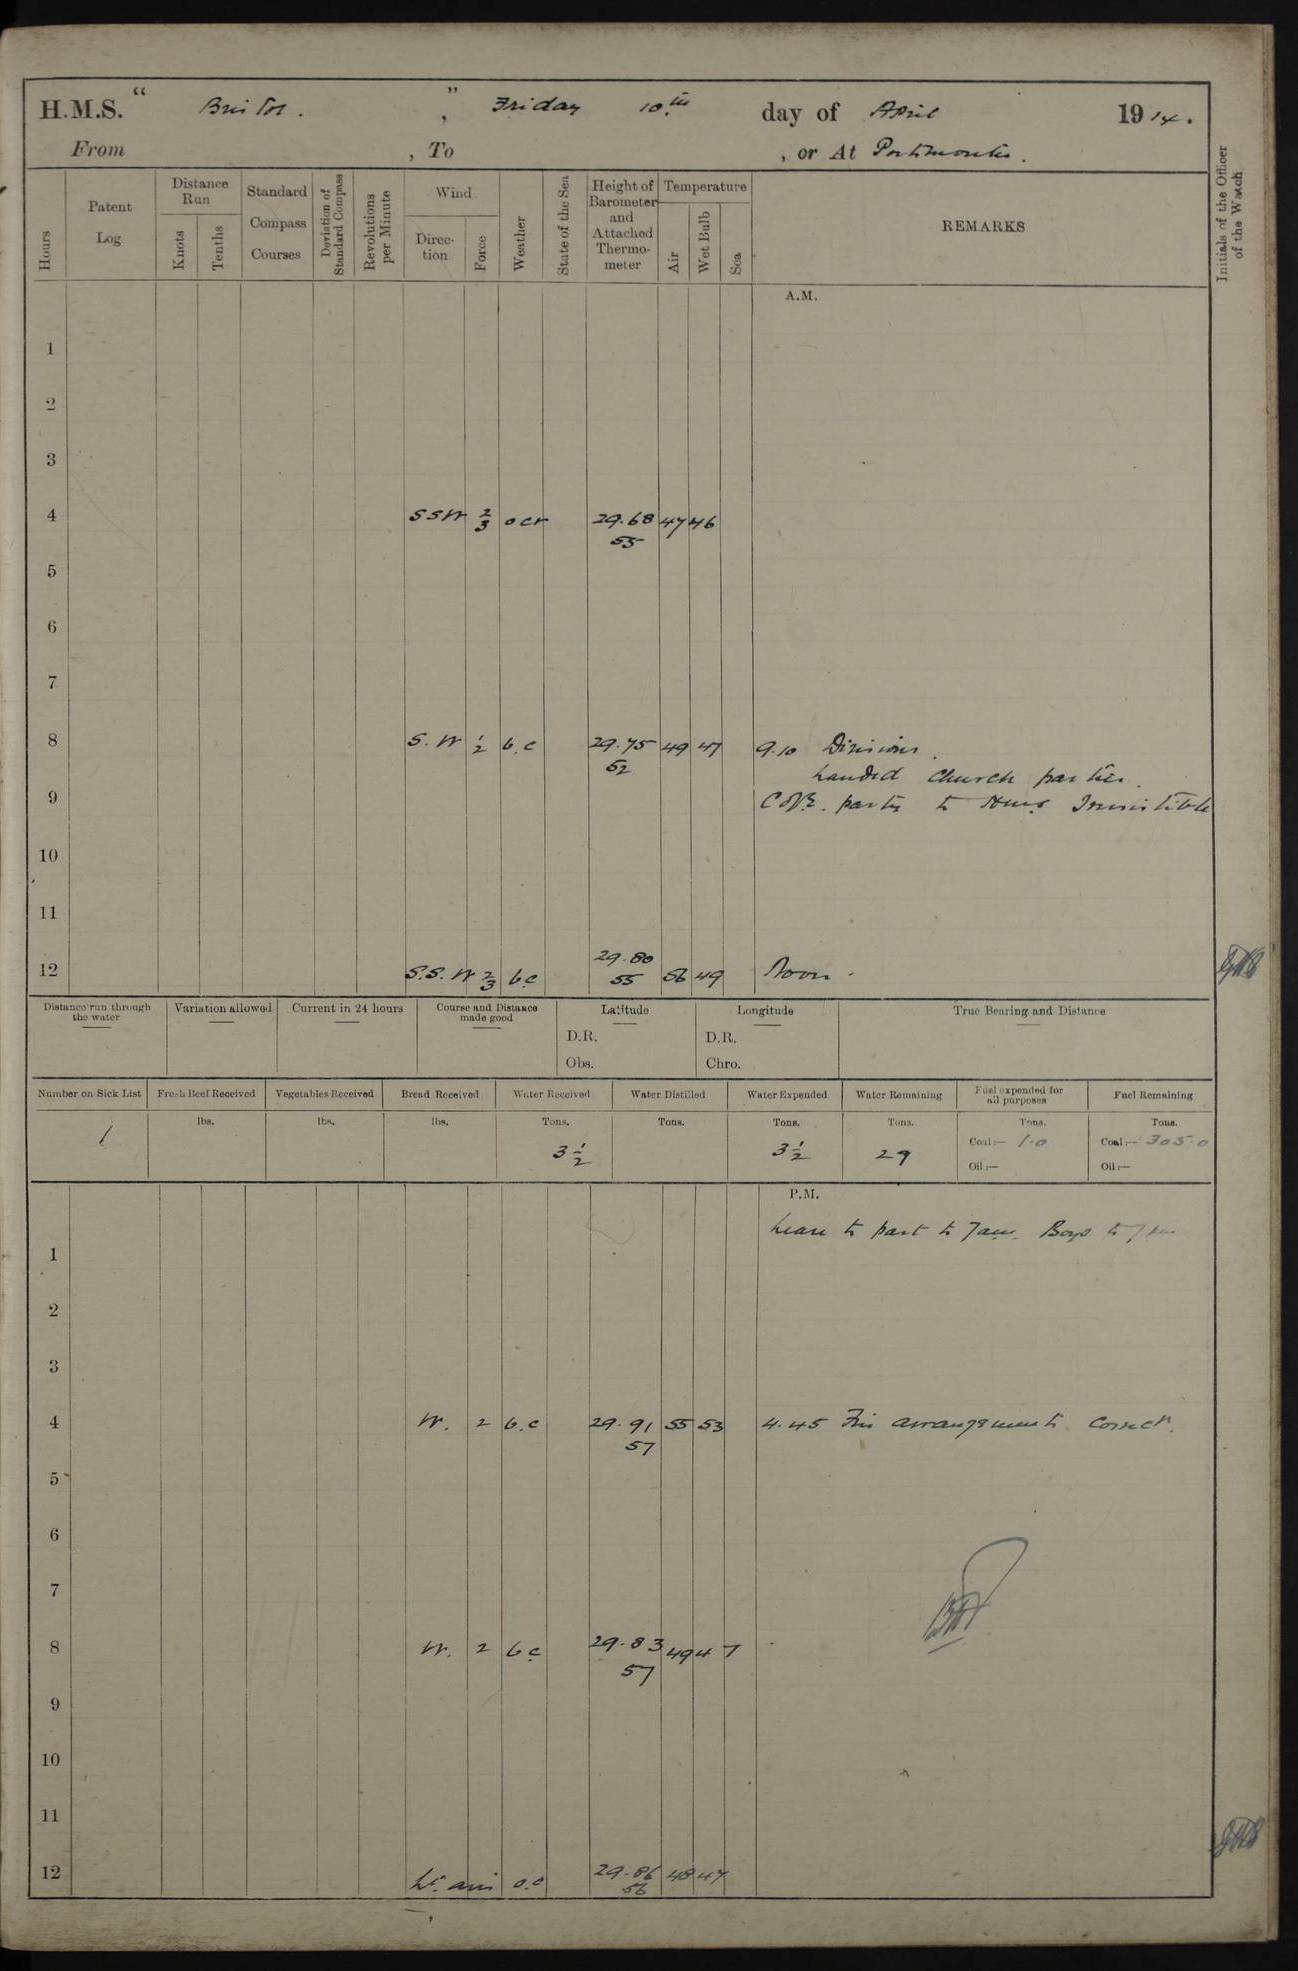 H.M.S. “ Bristol. ” , Friday 10.th day of April 1914.
From , To , or At Portsmouth.
Hours
Patent Log
Distance Run
Knots
Tenths
Standard Compass Courses
Deviation of Standard Compass
Revolutions per Minute
Wind
Direction
Force
Weather
State of the Sea
Height of Barometer and Attached Thermometer
Temperature
Air
Wet Bulb
Sea
REMARKS
Initials of the Officer of the Watch
A.M.
1
2
3
4 SSW 2/3 ocr 29.68 47 46
55
5
6
7
8 S.W 1/2 b.c 29.75 49 47 9.10 Divisions.
52
Landed Church parties.
9 C of E. party to HMS Irresistible
10
11
29.80
12 S.S.W 2/3 bc 55 56 49 Noon.
Distance run through the water
Variation allowed
Current in 24 hours
Course and Distance made good
Latitude
D.R.
Obs.
Longitude
D.R.
Chro.
True Bearing and Distance
Number on Sick List
Fresh Beef Received
Vegetables Received
Bread Received
Water Received
Water Distilled
Water Expended
Water Remaining
Fuel expended for all purposes
Fuel Remaining
lbs. lbs. lbs. Tons. Tons. Tons. Tons. Tons. Tons.
1 3½ 3½ 29 Coal:— 1.0 Coal:— 305.0
Oil:— Oil:—
P.M.
Leave to part to 7am. Boys to 7 pm
1
2
3
4 W. 2 b.c 29.91 55 53 4.45 Fire arrangements correct.
57
5
6
7
8 W. 2 bc 29.83 49 47
57
9
10
11
12 Lt. airs o.c 29.86 48 47
56